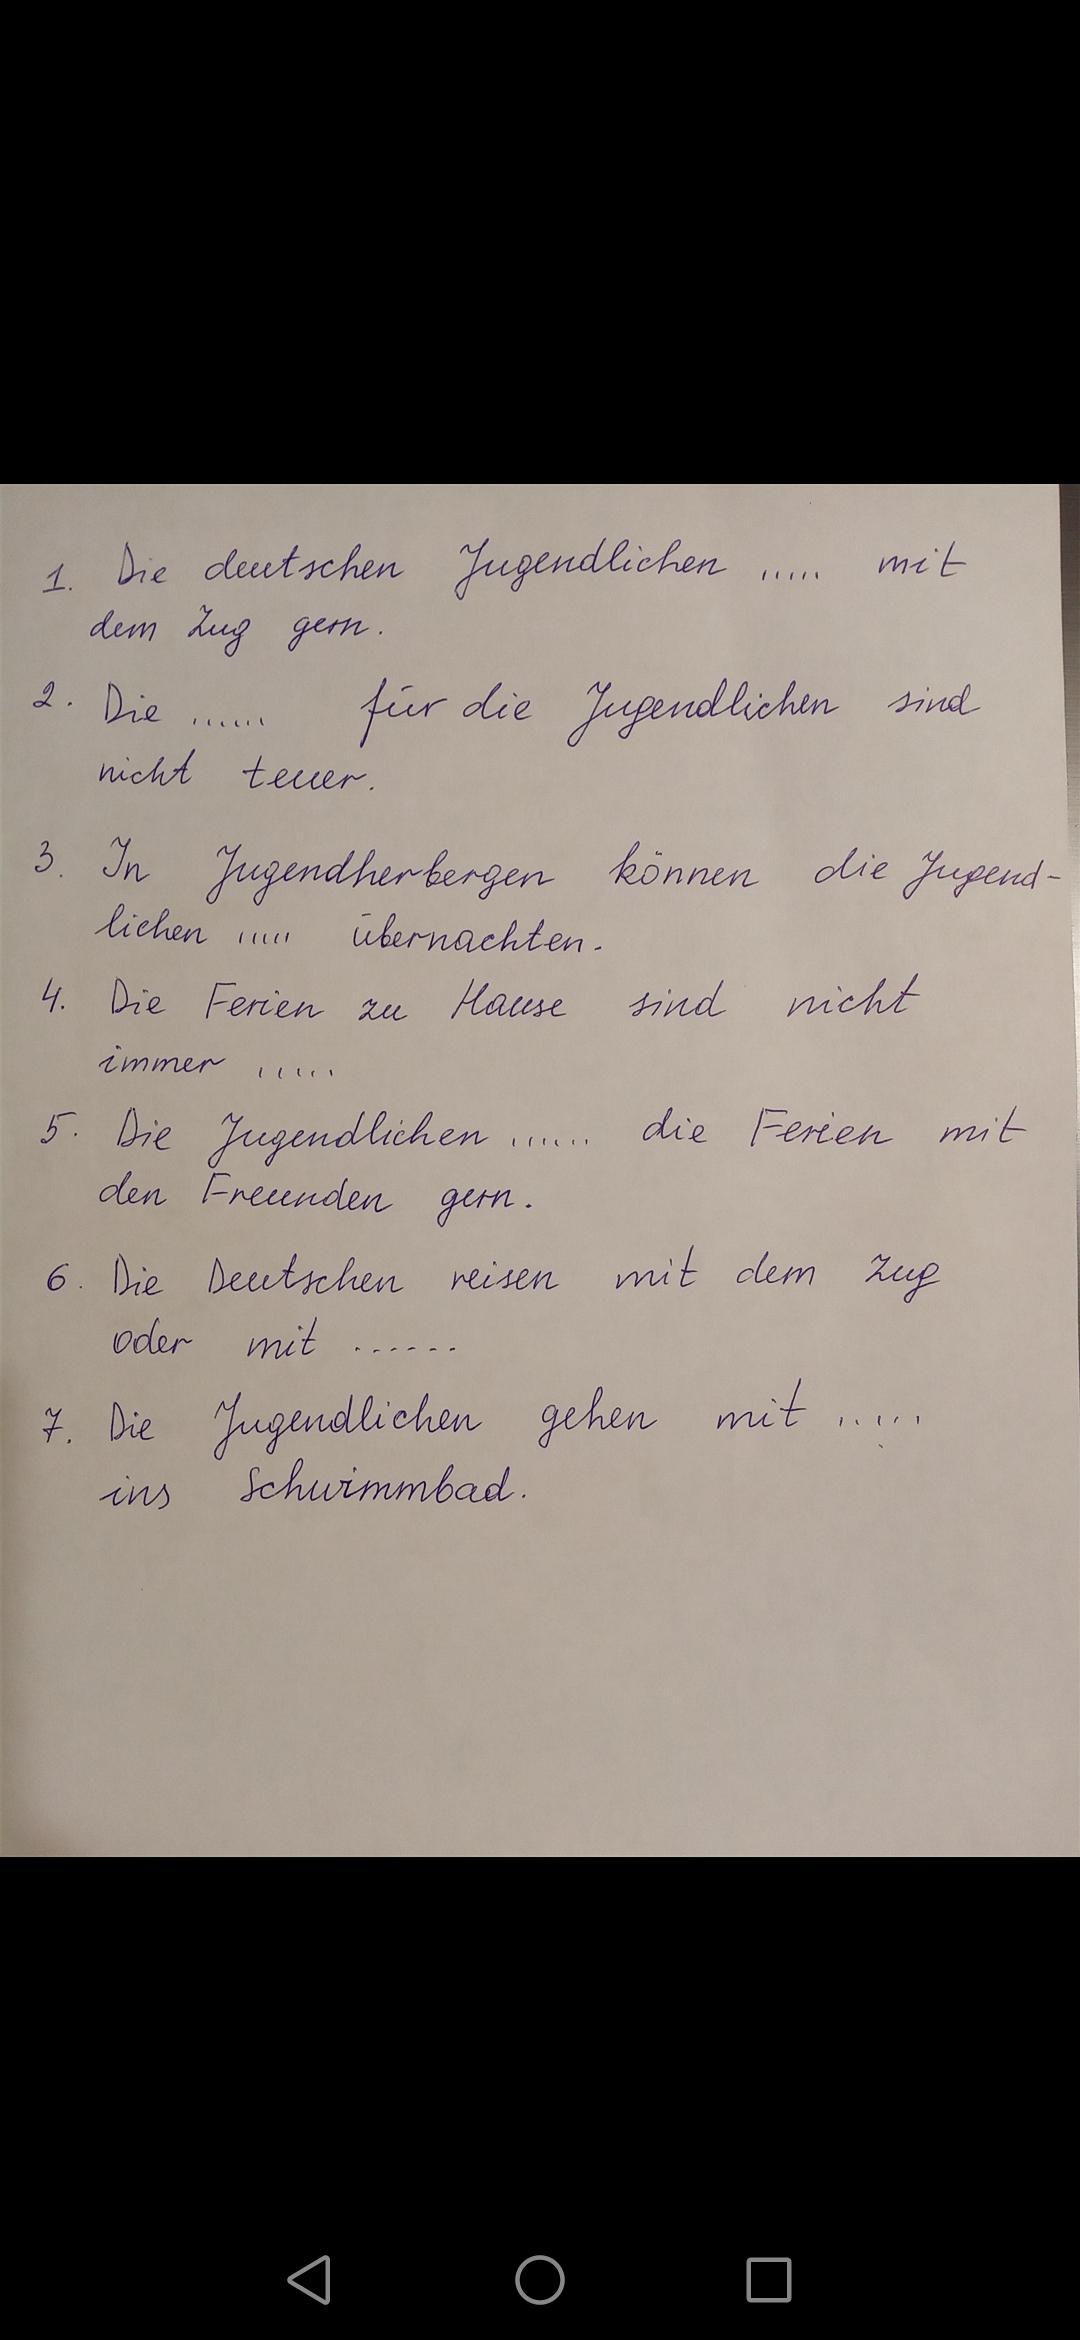 1. Die deutschen Jugendlichen ..... mit
dem Zug gern.
2. Die ...... für die Jugendlichen sind
nicht teuer.
3. In Jugendherbergen können die Jugend-
lichen ..... übernachten.
4. Die Ferien zu Hause sind nicht
immer .....
5. Die Jugendlichen ...... die Ferien mit
den Freunden gern.
6. Die Deutschen reisen mit dem Zug
oder mit ......
7. Die Jugendlichen gehen mit .....
ins Schwimmbad.